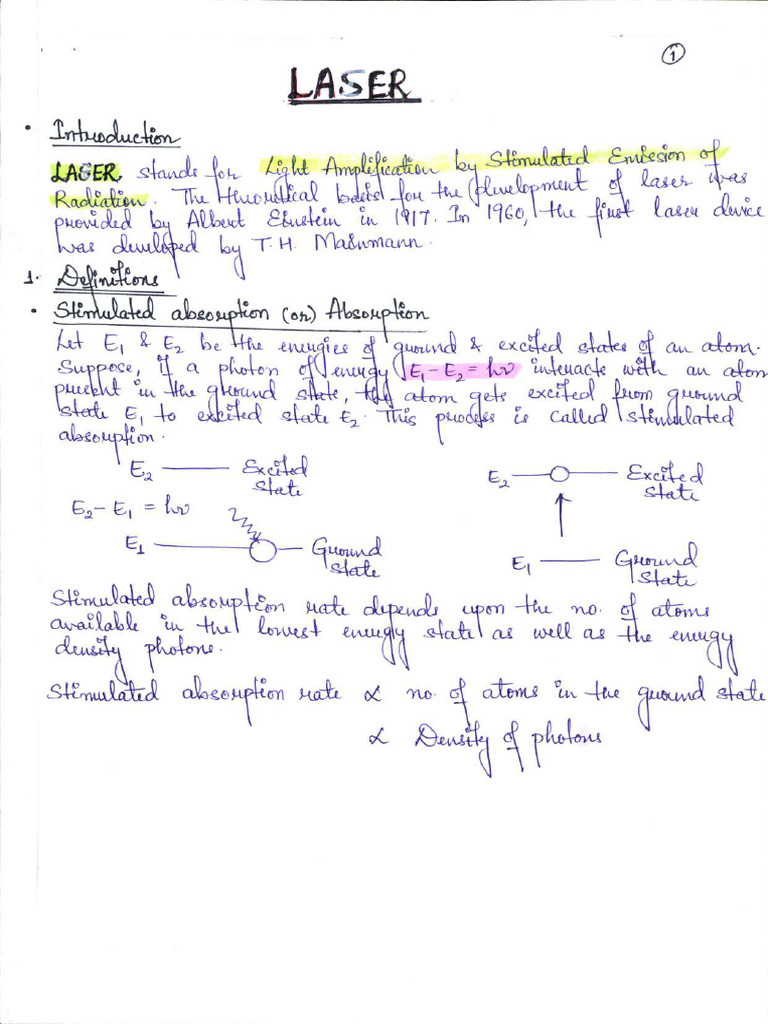 1
LASER
• Introduction
LASER stands for Light Amplification by Stimulated Emission of
Radiation. The theoretical basis for the development of laser was
provided by Albert Einstein in 1917. In 1960, the first laser device
was developed by T.H. Mainmann.
1. Definitions
• Stimulated absorption (or) Absorption
Let E₁ & E₂ be the energies of ground & excited states of an atom.
Suppose, if a photon of energy E₁-E₂=hν interacts with an atom
present in the ground state, the atom gets excited from ground
state E₁ to excited state E₂. This process is called stimulated
absorption.
E₂ Excited State
E₂-E₁ = hν
E₁ Ground State
E₂ Excited State
E₁ Ground State
Stimulated absorption rate depends upon the no. of atoms
available in the lowest energy state as well as the energy
density photons.
Stimulated absorption rate ∝ no. of atoms in the ground state
∝ Density of photons